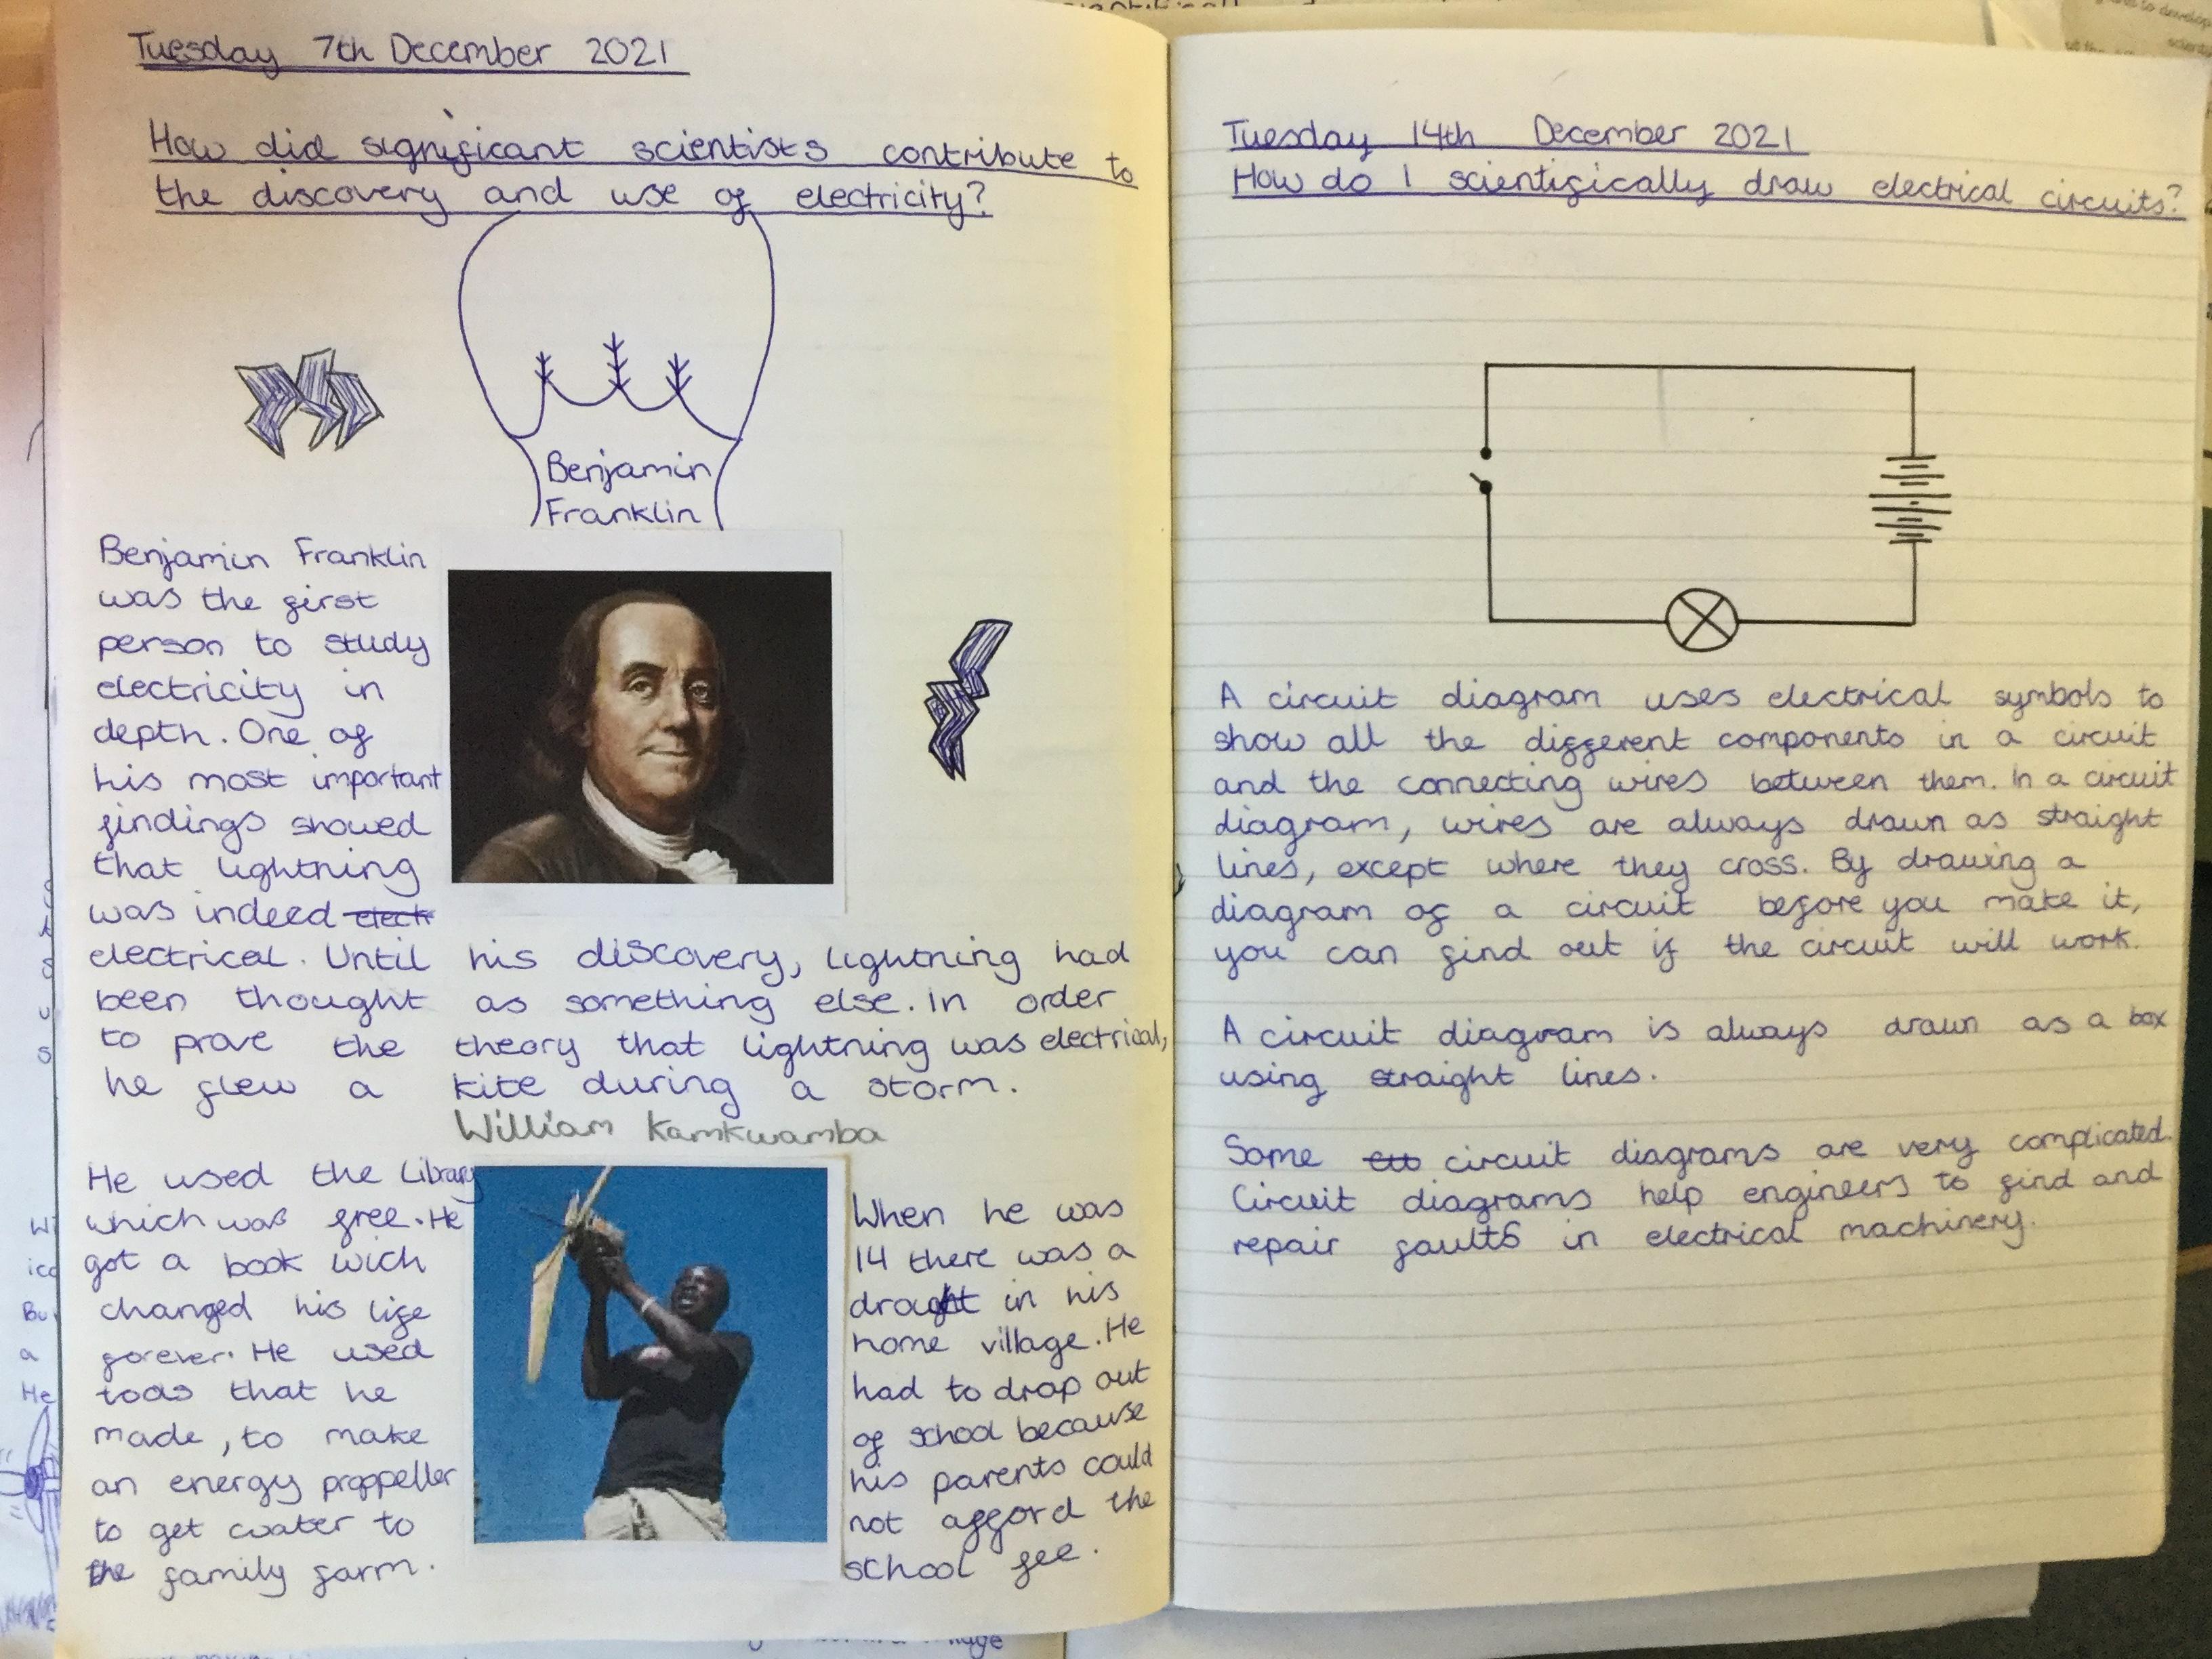 Tuesday 7th December 2021
How did significant scientists contribute to
the discovery and use of electricity?
Benjamin
Franklin
Benjamin Franklin
was the first
person to study
electricity in
depth. One of
his most important
findings showed
that lightning
was indeed elect
electrical. Until his discovery, lightning had
been thought as something else. In order
to prove the theory that lightning was electrical,
he flew a kite during a storm.
William Kamkwamba
He used the Library
which was free. He
got a book wich
changed his life
forever. He used
tools that he
made, to make
an energy proppeller
to get water to
the family farm.
When he was
14 there was a
draght in his
home village. He
had to drop out
of school because
his parents could
not afford the
school fee.
Tuesday 14th December 2021
How do I scientifically draw electrical circuits?
A circuit diagram uses electrical symbols to
show all the different components in a circuit
and the connecting wires between them. In a circuit
diagram, wires are always drawn as straight
lines, except where they cross. By drawing a
diagram of a circuit before you make it,
you can find out if the circuit will work.
A circuit diagram is always drawn as a box
using straight lines.
Some circuit diagrams are very complicated.
Circuit diagrams help engineers to find and
repair faults in electrical machinery.